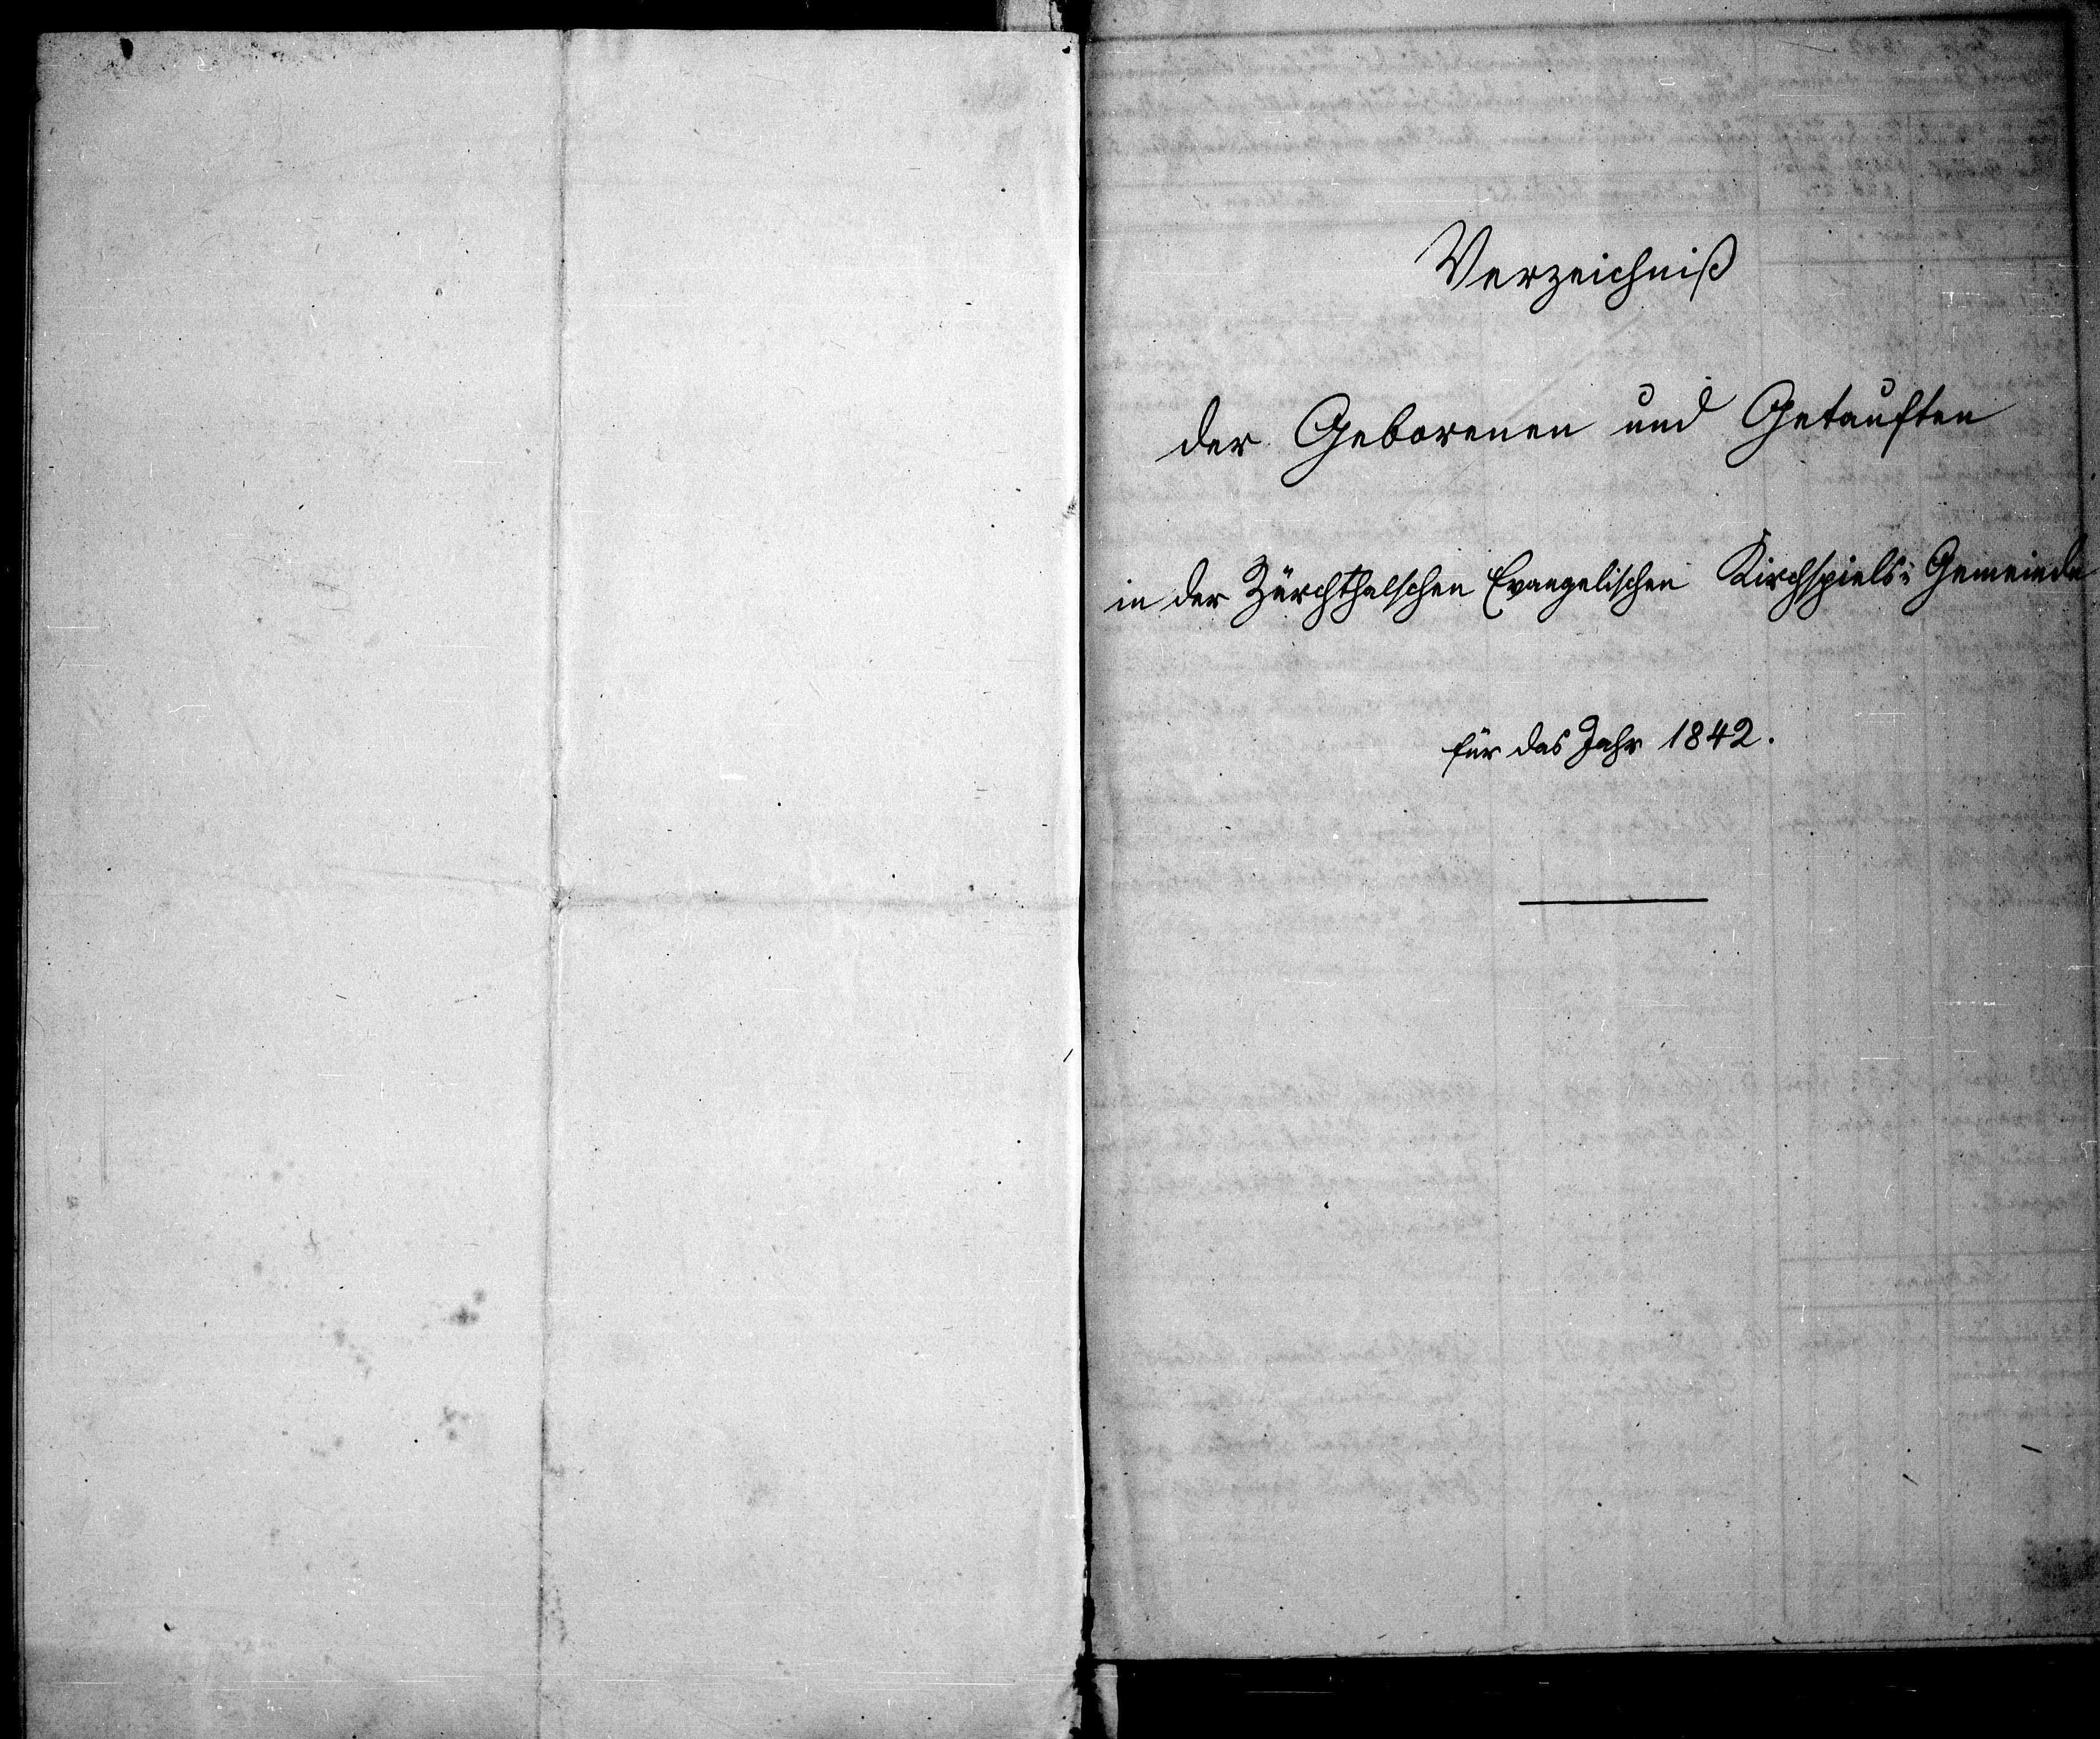 Verzeichniß
der Geborenen und Getauften
in der Zürchthalschen Evangelischen Kirchspiels-Gemeinde
für das Jahr 1842.